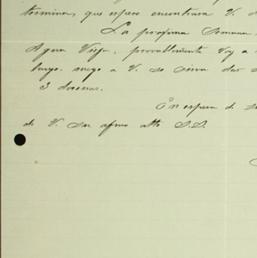 termina, que espero encontrara V. d
La proxima semana
Agua Vieja, provablemente Voy a
largo. ruego a V. se sirva dar
3 docenas.
En espera de s
de V. su afmo atto S.S.